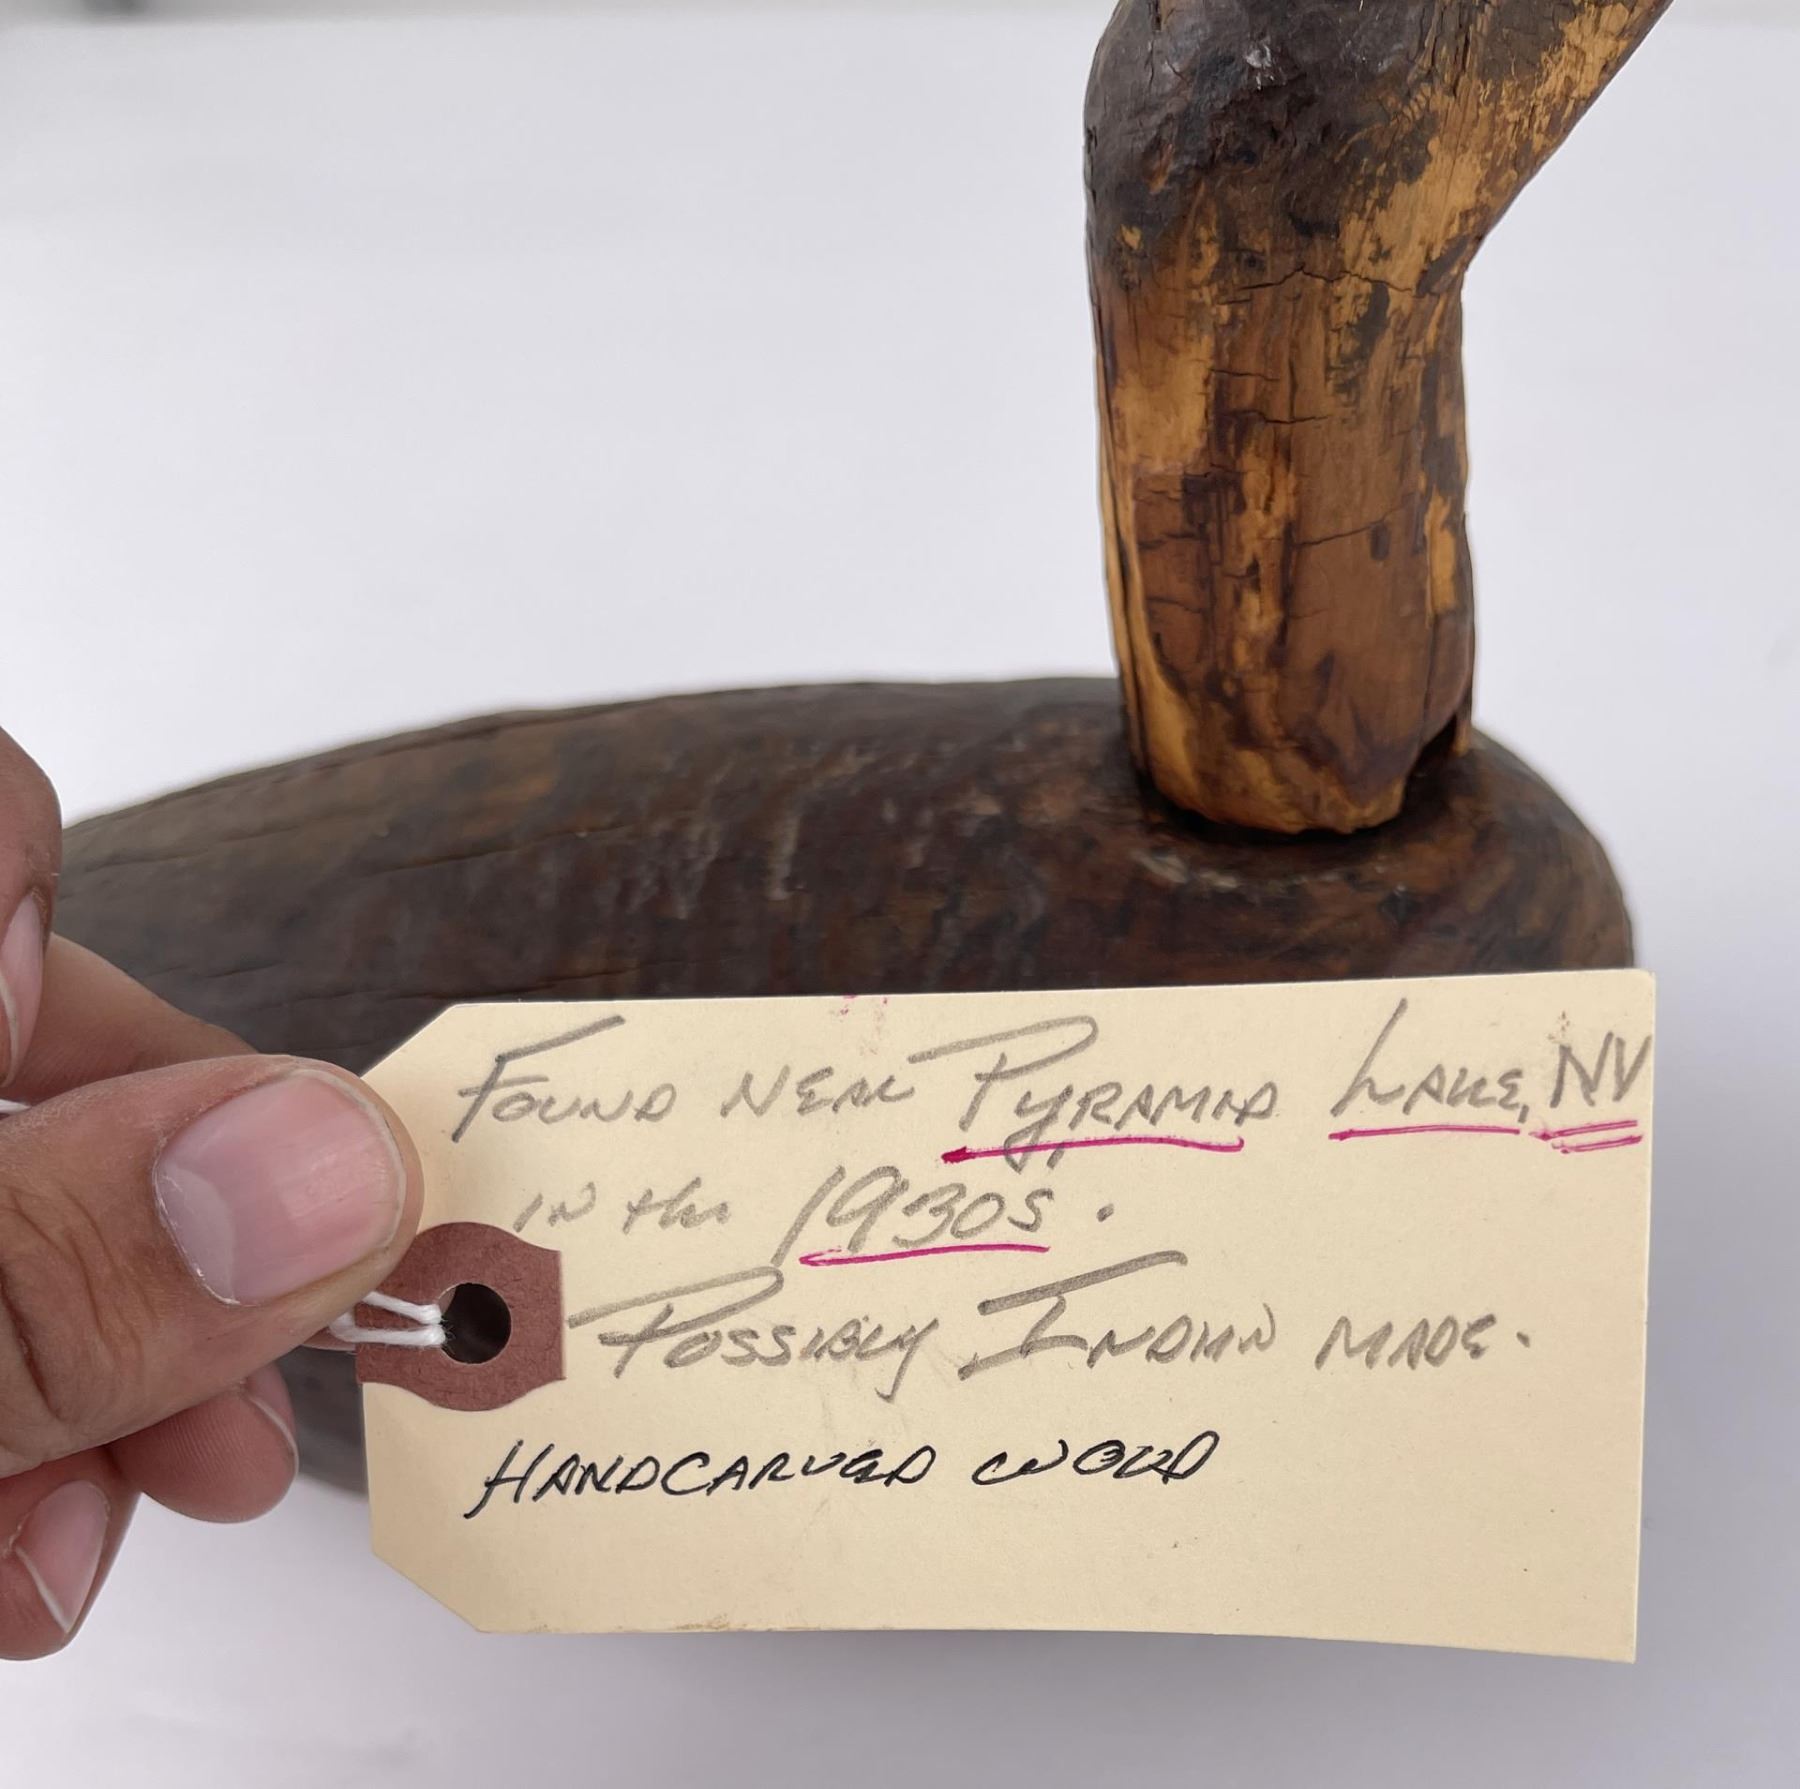 Found near Pyramid Lake, NV
in the 1930s.
Possibly Indian made.
Handcarved wood